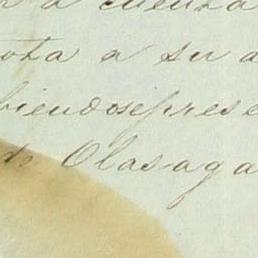 a cuenta
ota a su a
biendose prese
do Olasaga